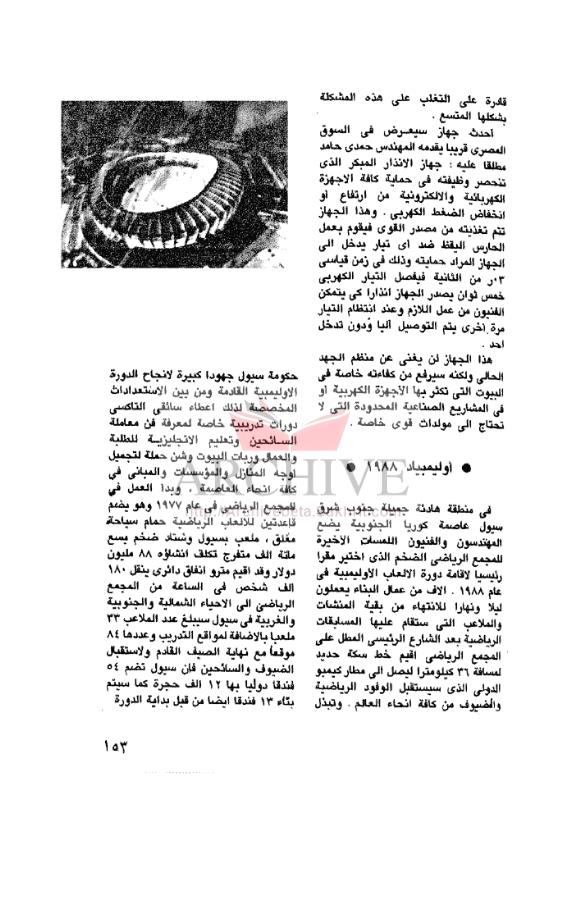 قادرة على التغلب على هذه المشكلة
بشكلها المتسع .
أحدث جهاز سيعرض فى السوق
المصرى قريبا يقدمه المهندس حمدى حامد
مطلقا عليه : جهاز الانذار المبكر الذى
تنحصر وظيفته فى حماية كافة الاجهزة
الكهربائية والالكترونية من ارتفاع او
انخفاض الضغط الكهربى . وهذا الجهاز
تتم تغذيته من مصدر القوى فيقوم بعمل
الحارس اليقظ ضد أى تيار يدخل الى
الجهاز المراد حمايته وذلك فى زمن قياسى
٠٣ر من الثانية فيفصل التيار الكهربى
خمس ثوان يصدر الجهاز انذارا كى يتمكن
الفنيون من عمل اللازم وعند انتظام التيار
مرة اخرى يتم التوصيل آليا ودون تدخل
احد .
هذا الجهاز لن يغنى عن منظم الجهد
الحالى ولكنه سيرفع من كفاءته خاصة فى
البيوت التى تكثر بها الأجهزة الكهربية أو
فى المشاريع الصناعية المحدودة التى لا
تحتاج الى مولدات قوى خاصة .
● أوليمبياد ١٩٨٨ ●
فى منطقة هادئة جميلة جنوب شرق
سيول عاصمة كوريا الجنوبية يضع
المهندسون والفنيون اللمسات الأخيرة
للمجمع الرياضى الضخم الذى اختير مقرا
رئيسيا لاقامة دورة الالعاب الاوليمبية فى
عام ١٩٨٨ . الاف من عمال البناء يعملون
ليلا ونهارا للانتهاء من بقية المنشات
والملاعب التى ستقام عليها المسابقات
الرياضية بعد الشارع الرئيسى المطل على
المجمع الرياضى اقيم خط سكة حديد
لمسافة ٣٦ كيلومترا ليصل الى مطار كيمبو
الدولى الذى سيستقبل الوفود الرياضية
والضيوف من كافة انحاء العالم . وتبذل
حكومة سيول جهودا كبيرة لانجاح الدورة
الاوليمبية القادمة ومن بين الاستعدادات
المخصصة لذلك اعطاء سائقى التاكسى
دورات تدريبية خاصة لمعرفة فن معاملة
السائحين وتعليم الانجليزية للطلبة
والعمال وربات البيوت وشن حملة لتجميل
أوجه المنازل والمؤسسات والمبانى فى
كافة انحاء العاصمة . وبدأ العمل فى
المجمع الرياضى فى عام ١٩٧٧ وهو يضم
قاعدتين للألعاب الرياضية حمام سباحة
مغلق ، ملعب بسبول وستاد ضخم يسع
مائة الف متفرج تكلف انشاؤه ٨٨ مليون
دولار وقد اقيم مترو انفاق دائرى ينقل ١٨٠
الف شخص فى الساعة من المجمع
الرياضى الى الاحياء الشمالية والجنوبية
والغربية فى سيول سيبلغ عدد الملاعب ٣٣
ملعبا بالاضافة لمواقع التدريب وعددها ٨٤
موقعا مع نهاية الصيف القادم ولاستقبال
الضيوف والسائحين فإن سيول تضم ٥٤
فندقا دوليا بها ١٢ الف حجرة كما سيتم
بناء ١٣ فندقا ايضا من قبل بداية الدورة
ARCHIVE
١٥٣